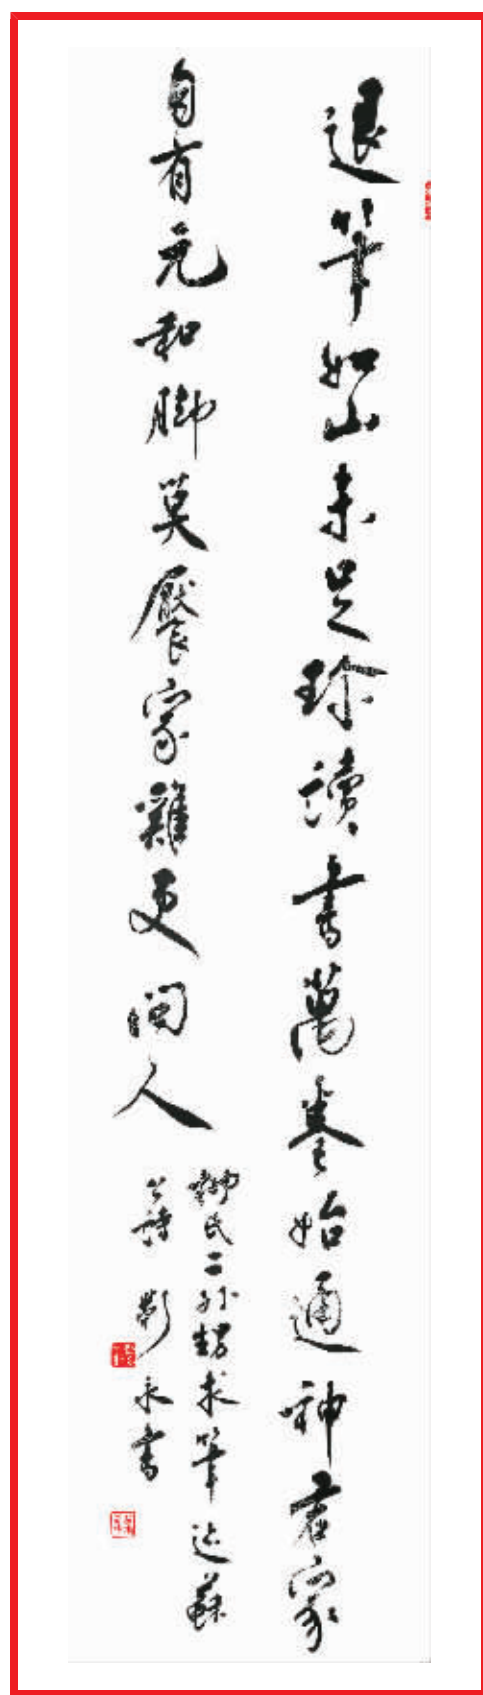 退筆如山未足珍讀書萬卷始通神君家
自有元和脚莫饜家雞更問人
柳氏二外甥求筆迹蘇
公詩 永書